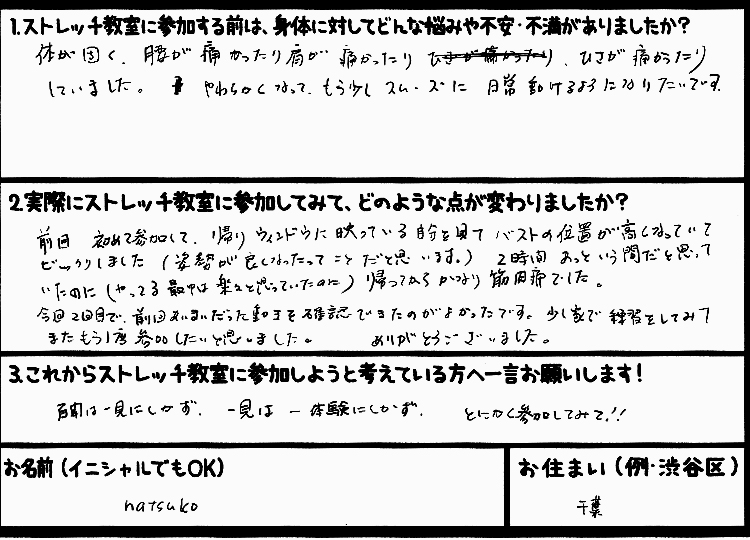 1.ストレッチ教室に参加する前は、身体に対してどんな悩みや不安・不満がありましたか?
体が固く、腰が痛かったり肩が痛かったり、ひざが痛かったり
していました。 やわらかくなって、もう少しスムーズに日常動けるようになりたいです。
2.実際にストレッチ教室に参加してみて、どのような点が変わりましたか?
前回 初めて参加して、帰りウィンドウに映っている自分を見てバストの位置が高くなっていて
ビックリしました(姿勢が良くなったってことだと思います。) 2時間あっという間だと思って
いたのに(やってる最中は楽々と思っていたのに)帰ってからかなり筋肉痛でした。
今回2回目で、前回あいまいだった動きを確認できたのがよかったです。少し家で練習をしてみて
またもう1度参加したいと思いました。 ありがとうございました。
3.これからストレッチ教室に参加しようと考えている方へ一言お願いします!
百聞は一見にしかず、一見は一体験にしかず。 とにかく参加してみて!!
お名前(イニシャルでもOK)
natsuko
お住まい(例・渋谷区)
千葉